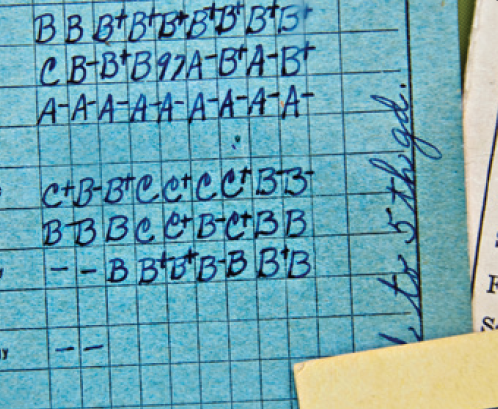 B B B+ B+ B+ B+ B+ B+ B+
C B- B+ B 97 A- B+ A- B+
A- A- A- A- A- A- A- A- A-
C+ B- B+ C C+ C C+ B- B-
B- B B C C+ B- C+ B B
- - B B+ B+ B- B B+ B
- -
to 5th gd.